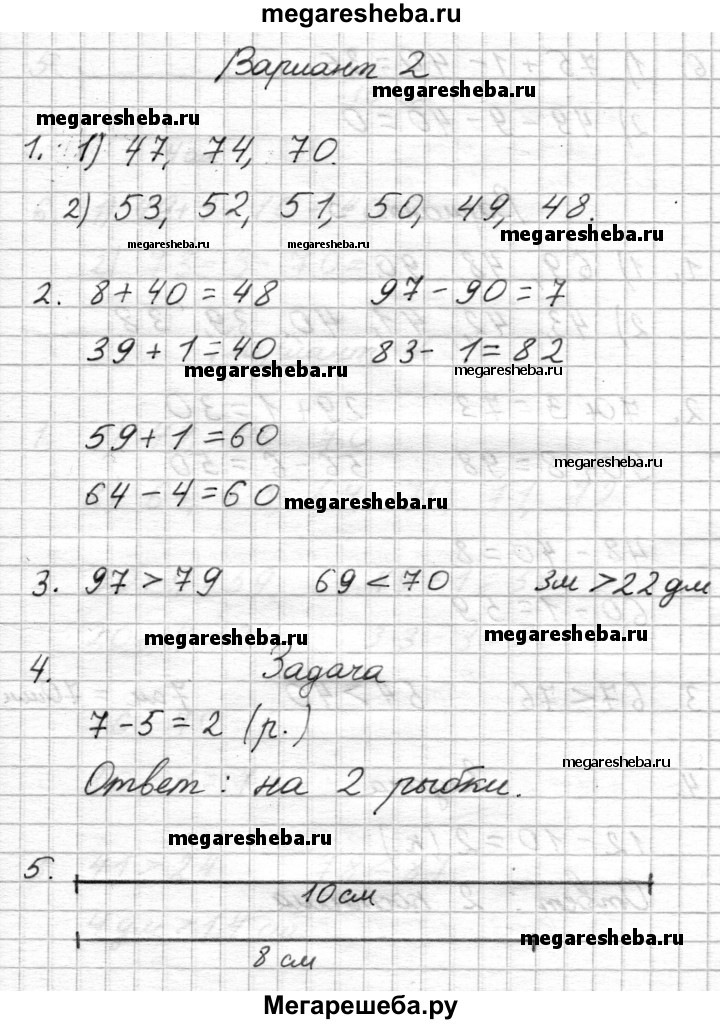 megaresheba.ru
Вариант 2
megaresheba.ru
megaresheba.ru
1. 1) 47, 74, 70.
2) 53, 52, 51, 50, 49, 48.
megaresheba.ru
megaresheba.ru megaresheba.ru
2. 8 + 40 = 48 97 - 90 = 7
39 + 1 = 40 83 - 1 = 82
megaresheba.ru megaresheba.ru
59 + 1 = 60
megaresheba.ru
64 - 4 = 60 megaresheba.ru
3. 97 > 79 69 < 70 3м > 22 дм
megaresheba.ru megaresheba.ru
4. Задача
7 - 5 = 2 (р.)
megaresheba.ru
Ответ: на 2 рыбки.
megaresheba.ru
5.
10 см
megaresheba.ru
8 см
Мегарешеба.ру